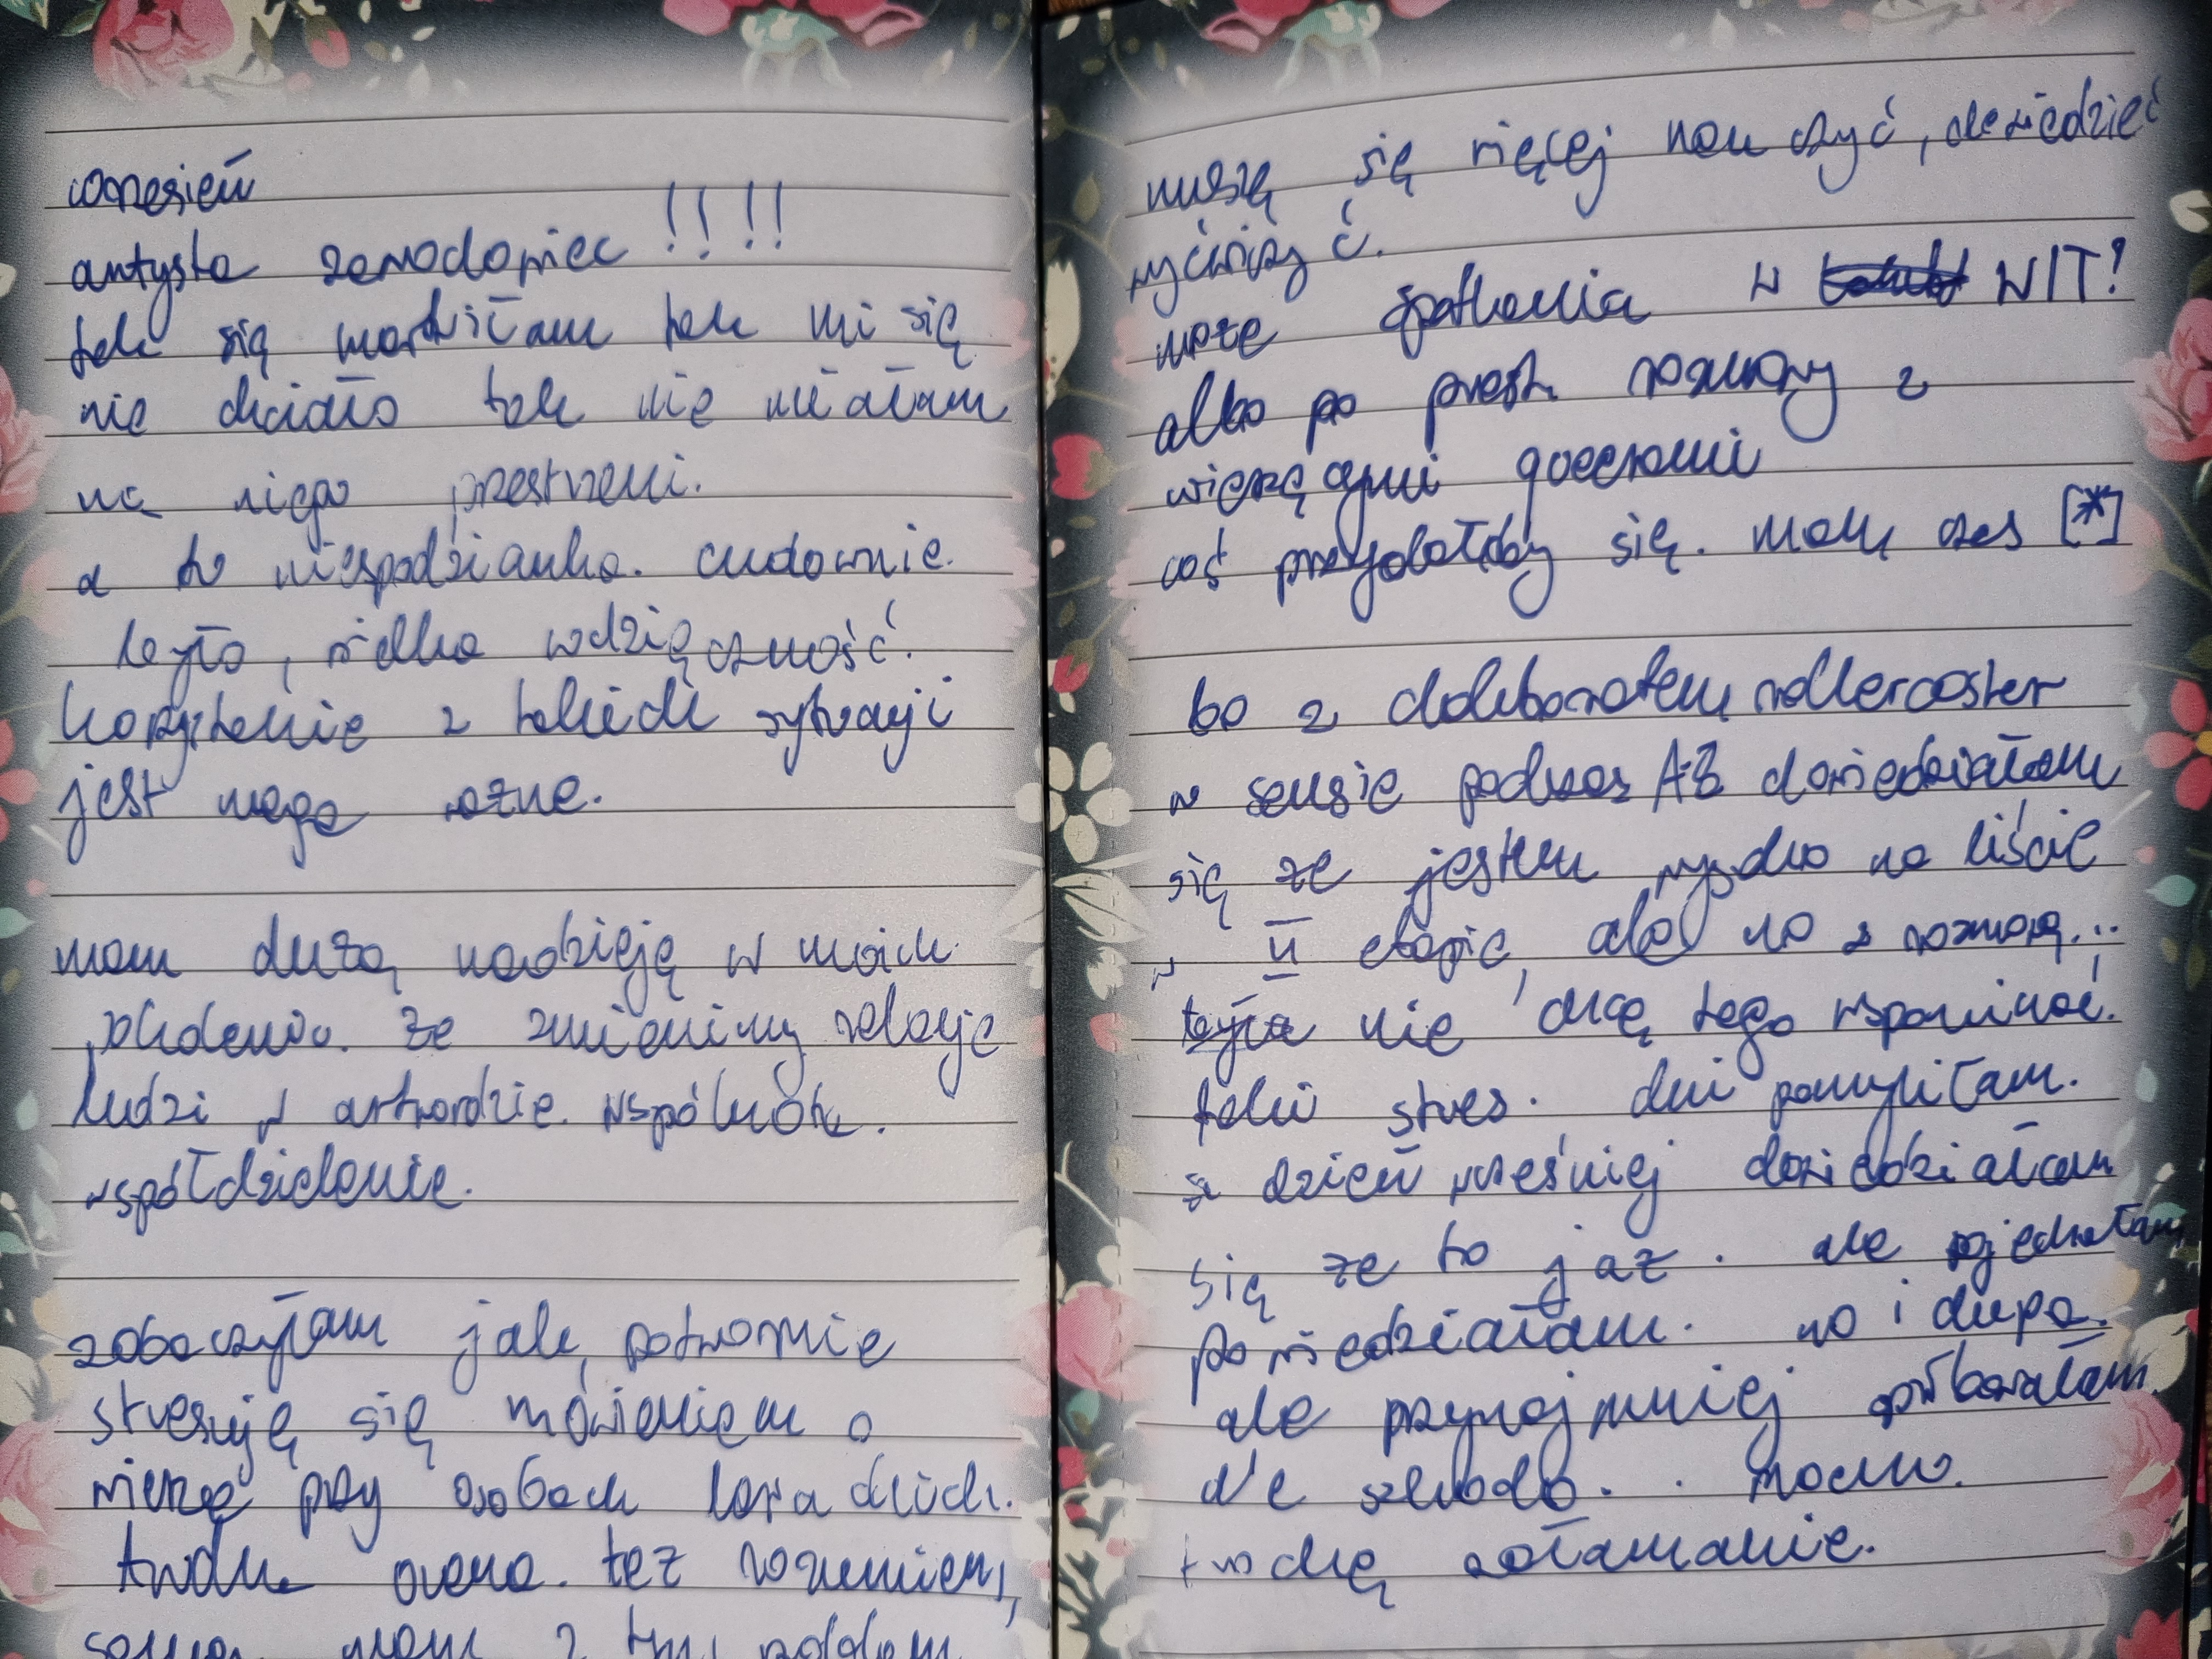 wrzesień
artysta zawodowiec !!!!
tak się martwiłam tak mi się
nie chciało tak nie miałam
na niego przestrzeni.
a tu niespodzianka. cudownie.
było, wielka wdzięczność.
korzystanie z takich sytuacji
jest mega ważne.
mam dużą nadzieję w moich
że zmienimy relacje
ludzi w artworldzie. wspólnota.
współdzielenie.
zobaczyłam jak potwornie
stresuję się mówieniem o
wierze przy osobach
trudna też rozumiem,
mam z tym problem
muszę się więcej nauczyć, dowiedzieć
wyćwiczyć.
może spotkania w WIT!
albo po prostu rozmowy z
wierzącymi queerami
coś przydałoby się. mam czas [*]
bo z doktoratem rollercoaster
w sensie podczas AZ dowiedziałam
się że jestem wysoko na liście
w II etapie, ale no z rozmową...
nie chcę tego wspominać.
taki stres. dni pomyliłam.
dzień wcześniej dowiedziałam
się że to już. ale pojechałam
powiedziałam. no i dupa.
ale przynajmniej spróbowałam
ale szkoda. . mocno.
trochę załamanie.